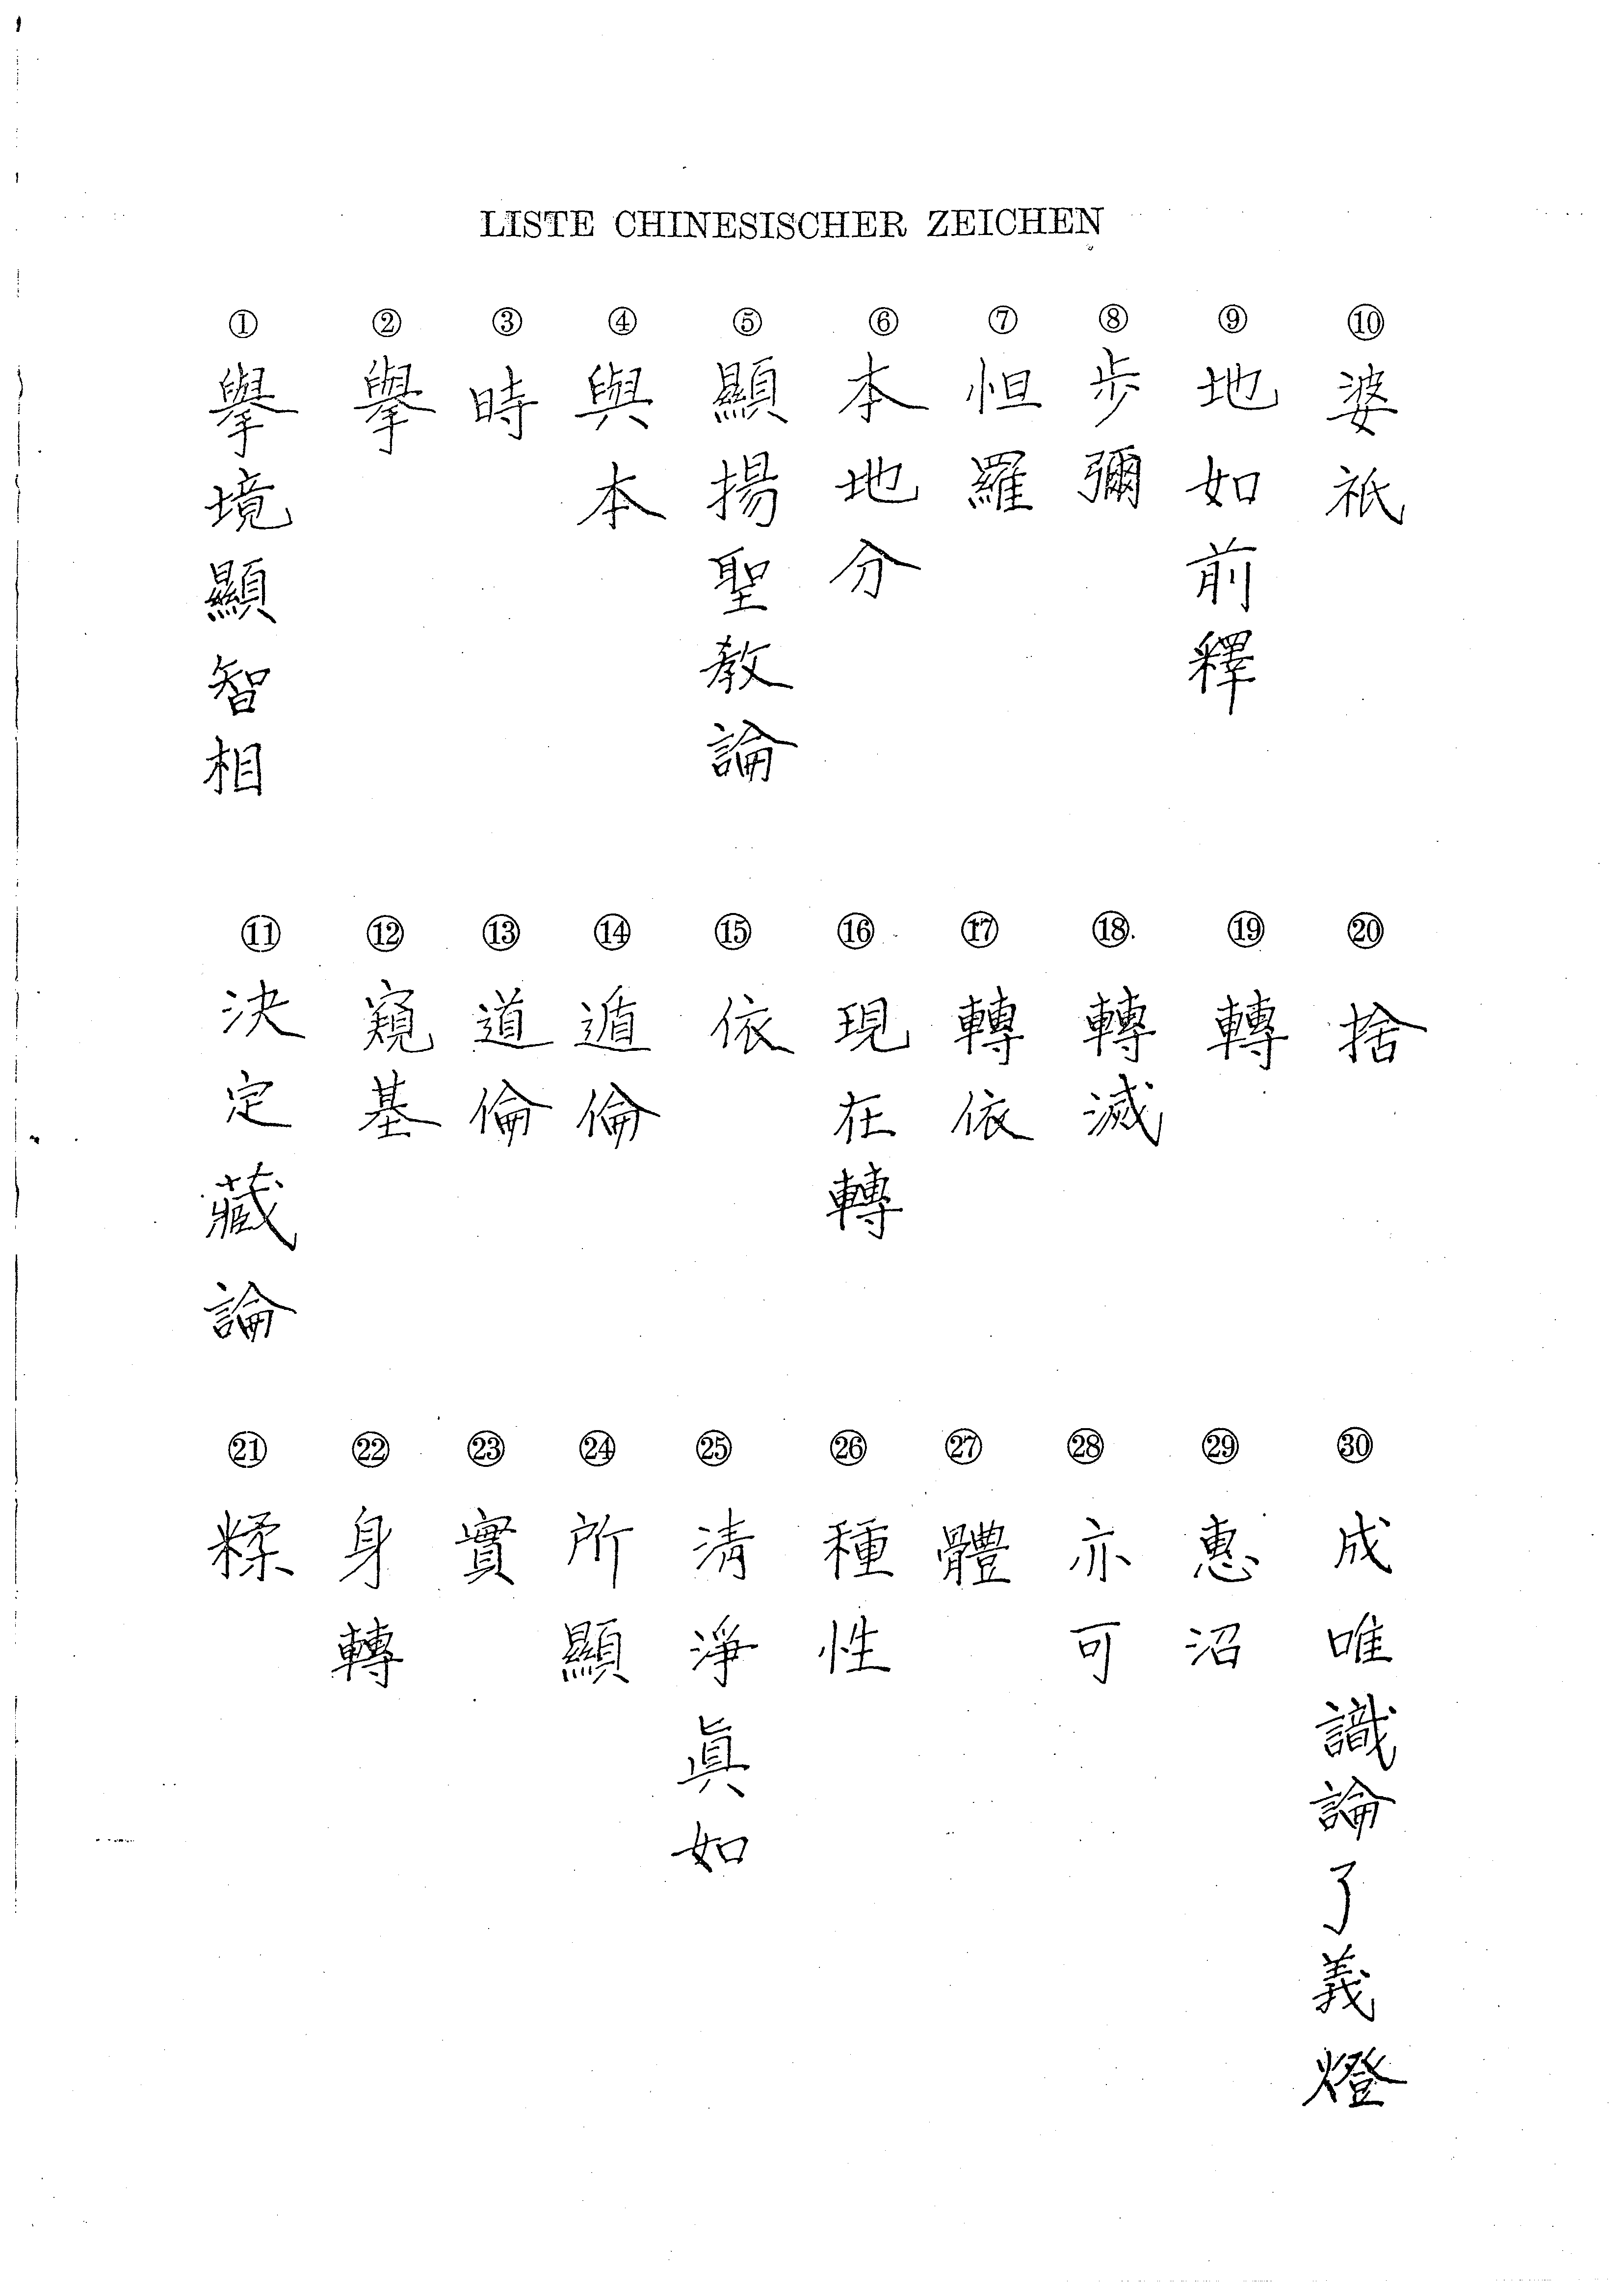 LISTE CHINESISCHER ZEICHEN
① 擧境顯智相
② 擧
③ 時
④ 與本
⑤ 顯揚聖教論
⑥ 本地分
⑦ 怛羅
⑧ 步彌
⑨ 地如前釋
⑩ 婆衹
⑪ 決定藏論
⑫ 窺基
⑬ 道倫
⑭ 遁倫
⑮ 依
⑯ 現在轉
⑰ 轉依
⑱ 轉滅
⑲ 轉
⑳ 捨
㉑ 糅
㉒ 身轉
㉓ 實
㉔ 所顯
㉕ 淸淨眞如
㉖ 種性
㉗ 體
㉘ 亦可
㉙ 惠沼
㉚ 成唯識論了義燈